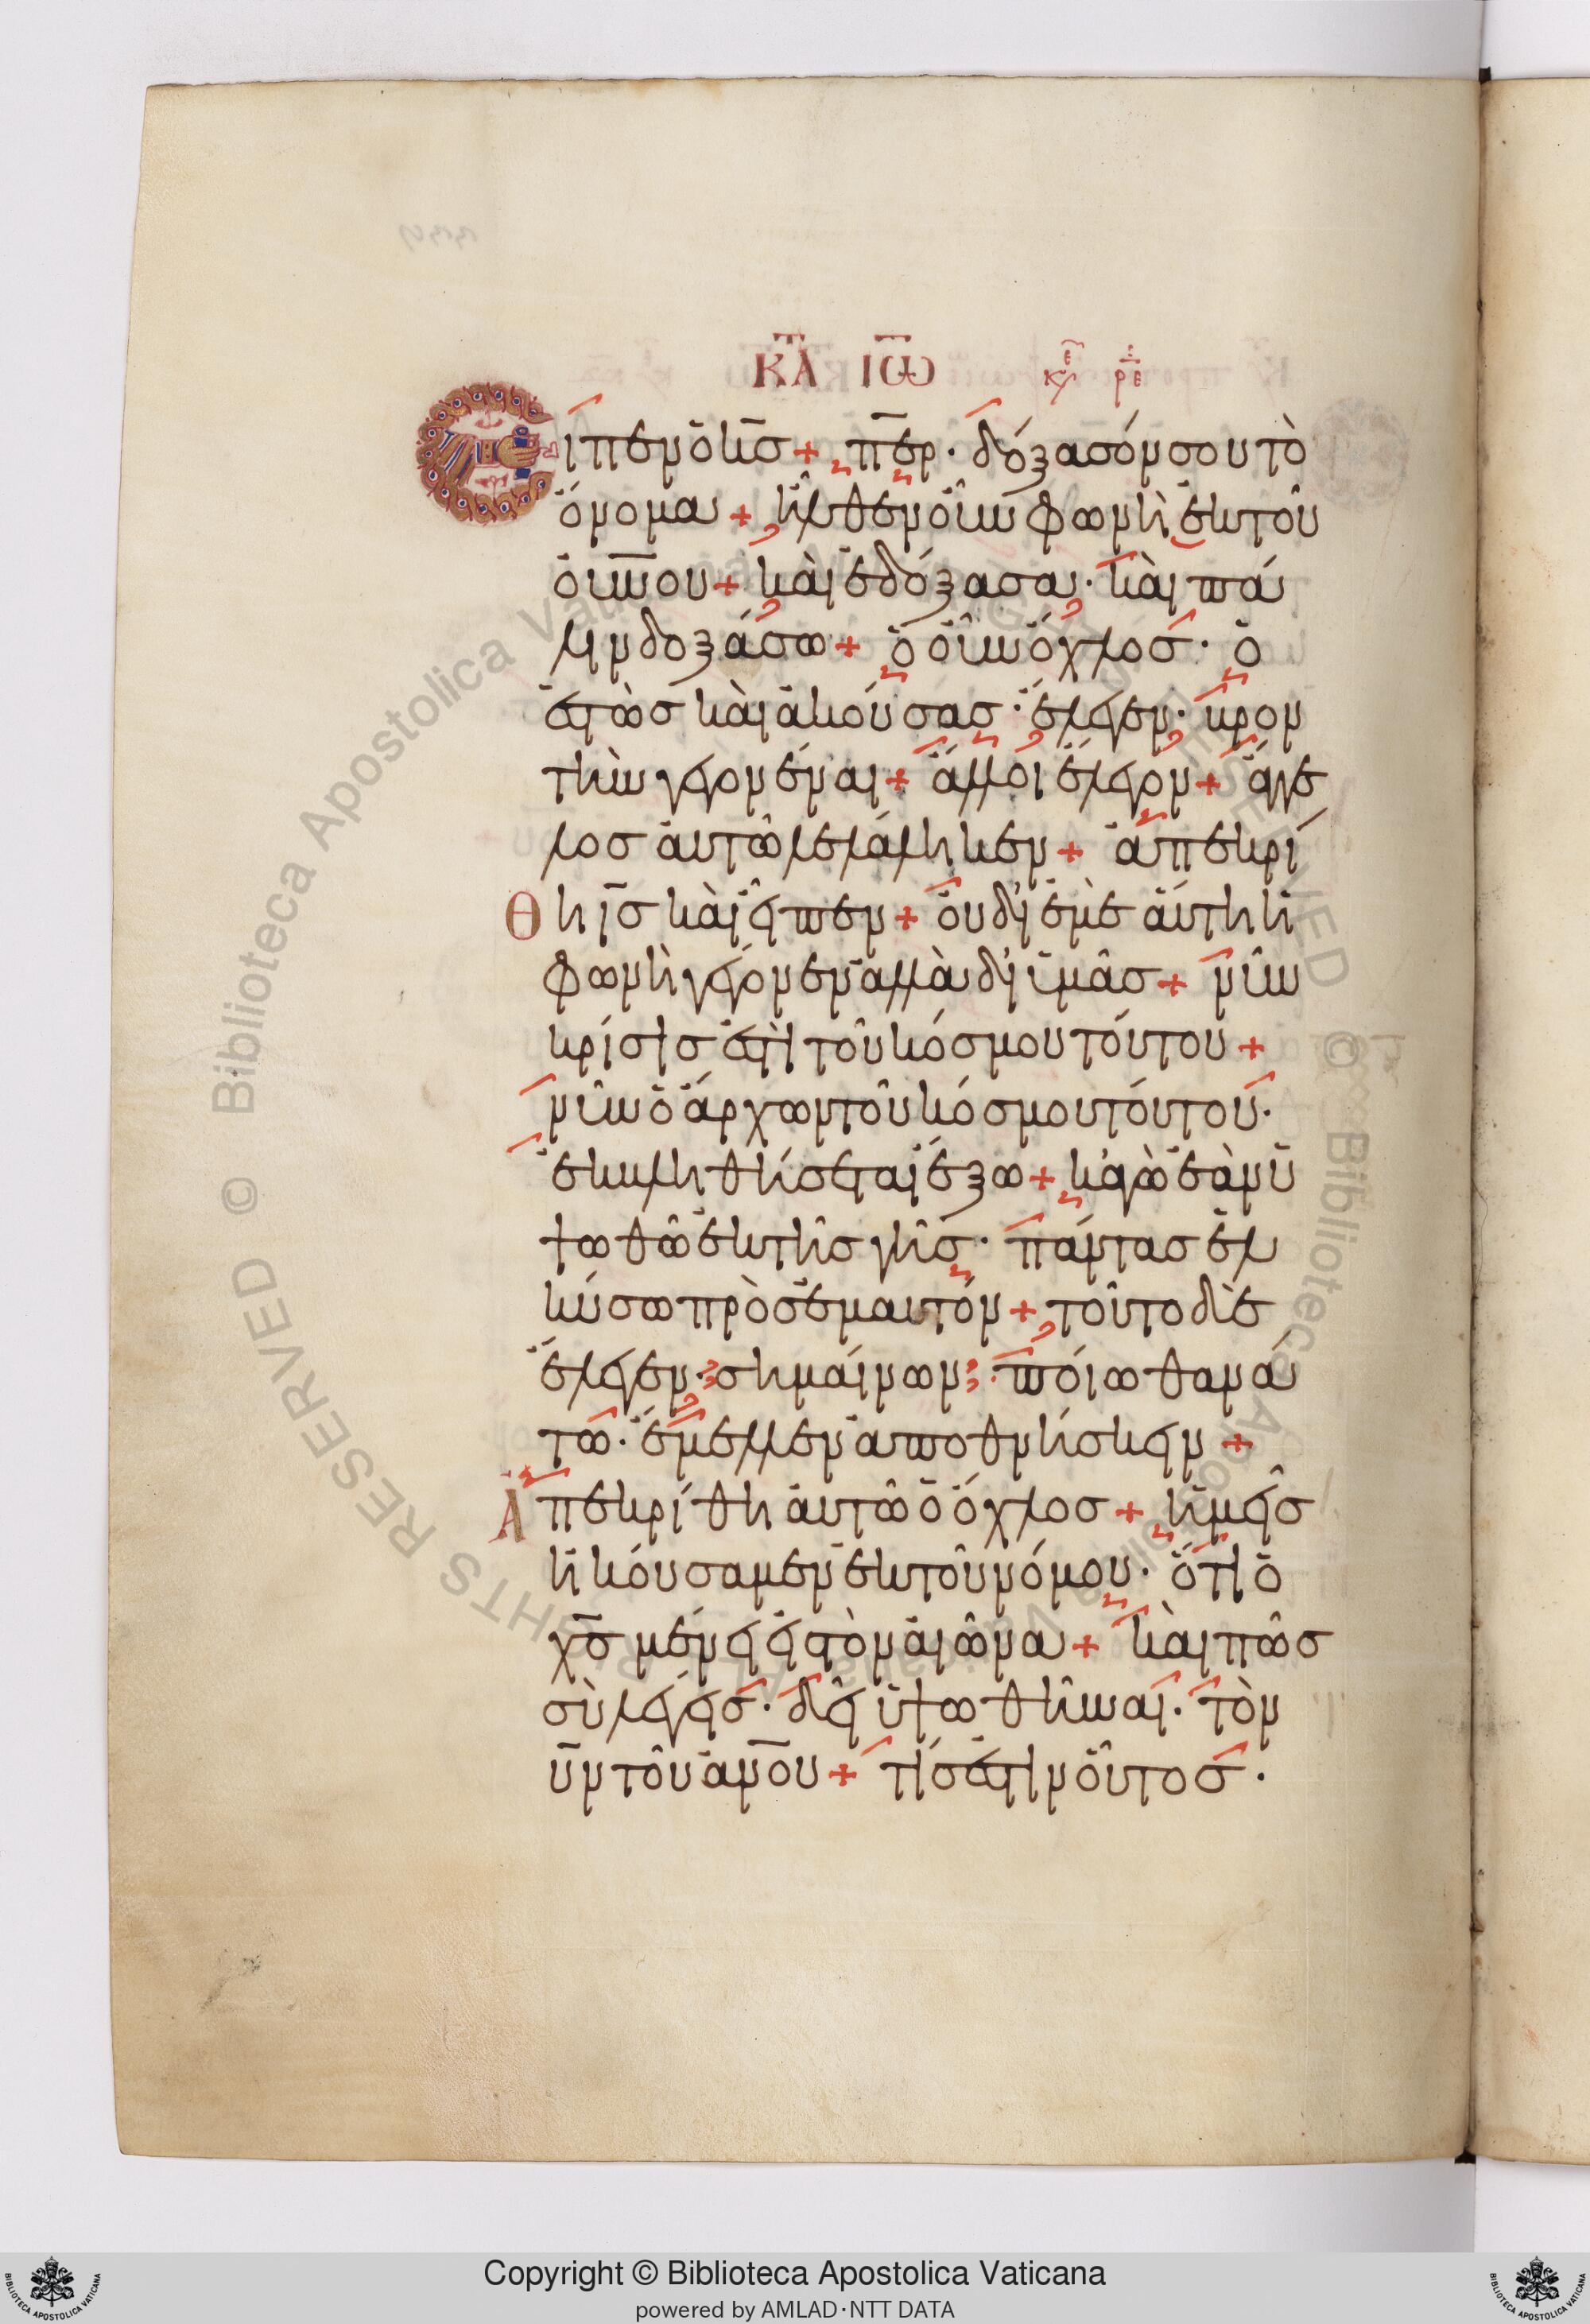 ΚΑΤ ΙΩ κυ ε ρε
Εἶπεν ὁ κ̅σ̅ + π̅ε̅ρ̅ · δόξασόν σου τὸ
ὄνομα + ἦλθεν οὖν φωνὴ ἐκ τοῦ
ο̅υ̅ν̅ο̅υ̅ + καὶ ἐδόξασα · καὶ πά
λιν δοξάσω + ὁ οὖν ὄχλοσ · ὁ
ἑστὼσ καὶ ἀκούσασ · ἔλεγεν · βρον
τὴν γεγονέναι + ἄλλοι ἔλεγον + ἄγγε
λοσ αὐτῶ λελάληκεν + ἀπεκρί
θη ι̅σ̅ καὶ εἶπεν + οὐ δι' ἐμὲ αὕτη ἡ
φωνὴ γέγονεν ἀλλὰ δι' ὑμᾶσ + νῦν
κρίσισ ἐστὶ τοῦ κόσμου τούτου +
νῦν ὁ ἄρχων τοῦ κόσμου τούτου ·
ἐκβληθήσεται ἔξω + κἀγὼ ἐὰν ὑ
ψωθῶ ἐκ τῆσ γῆσ · πάντασ ἑλ
κύσω πρὸσ ἐμαυτόν + τοῦτο δὲ
ἔλεγεν · σημαίνων · ποίω θανά
τω · ἔμελλεν ἀποθνήσκειν +
Ἀπεκρίθη αὐτῶ ὁ ὄχλοσ + ἡμεῖσ
ἠκούσαμεν ἐκ τοῦ νόμου · ὅτι ὁ
χ̅σ̅ μένει εἰσ τὸν αἰῶνα + καὶ πῶσ
σὺ λέγεισ · δεῖ ὑψωθῆναι · τὸν
υ̅ν̅ τοῦ α̅ν̅ο̅υ̅ + τίσ ἐστιν οὗτοσ ·
Copyright © Biblioteca Apostolica Vaticana
powered by AMLAD·NTT DATA